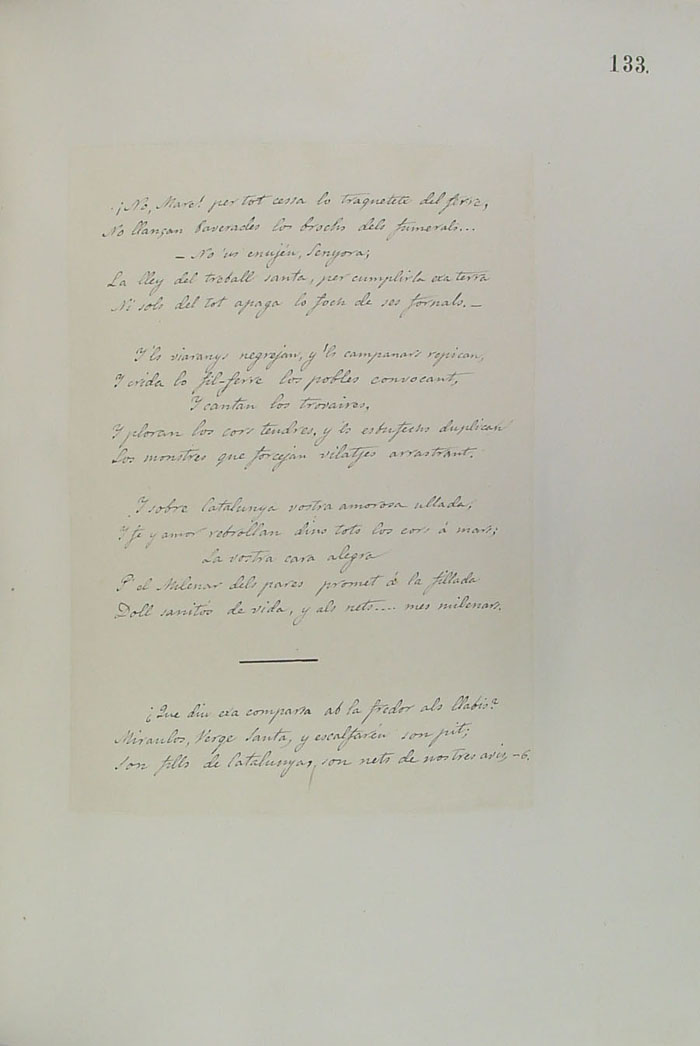 133.
¡No, Mare! per tot cessa lo traquetete del ferre,
No llançan baverades los brochs dels fumerals...
— No 'us enujéu, Senyora;
La lley del treball santa, per cumplirla exa terra
Ni sols del tot apaga lo foch de ses fornals. —
Y 'ls viaranys negrejan, y 'ls campanars repican,
Y crida lo fil-ferre los pobles convocant,
Y cantan los trovaires,
Y ploran los cors tendres, y 'ls esbufechs duplican
Los monstres que forcejan vilatjes arrastrant.
Y sobre Catalunya vostra amorosa ullada,
Y fe y amor rebrollan dins tots los cors á mars;
La vostra cara alegra
P' el Milenar dels pares promet á la fillada
Doll sanitós de vida, y als nets.... mes milenars.
¿Que diu exa comparsa ab la fredor als llabis?
Miraulos, Verge Santa, y escalfaréu son pit;
Son fills de Catalunya, son nets de nostres avis, —6.